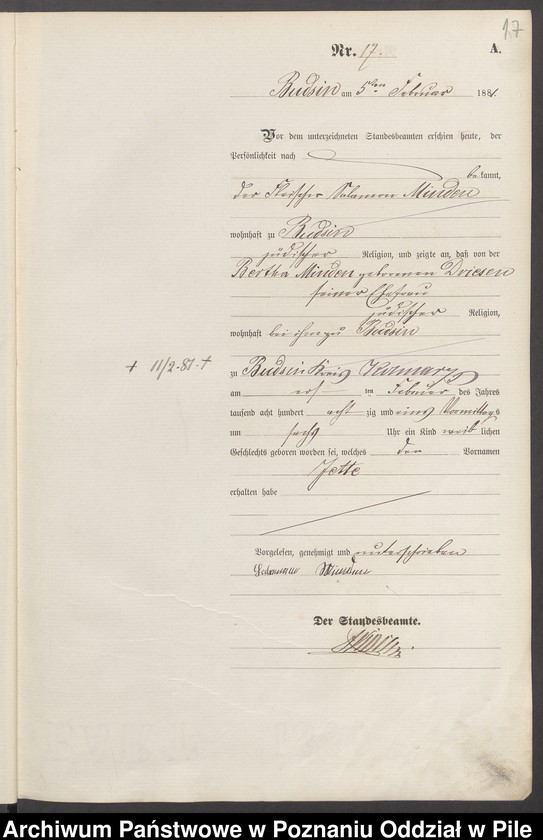 17
Nr. 17. A.
Budsin am 5ten Februar 1881.
Vor dem unterzeichneten Standesbeamten erschien heute, der
Persönlichkeit nach
bekannt,
der Fleischer Salomon Minden
wohnhaft zu Budsin
jüdischer Religion, und zeigte an, daß von der
Bertha Minden geborenen Driesen
seiner Ehefrau
jüdischer Religion,
wohnhaft bei ihm zu Budsin
+ 11/2.81.+
zu Budsin Kreis
am ersten Februar des Jahres
tausend acht hundert achtzig und eins Vormittags
um sechs Uhr ein Kind weiblichen
Geschlechts geboren worden sei, welches den Vornamen
Jette
erhalten habe
Vorgelesen, genehmigt und unterschrieben
Minden
Der Standesbeamte.
Archiwum Państwowe w Poznaniu Oddział w Pile